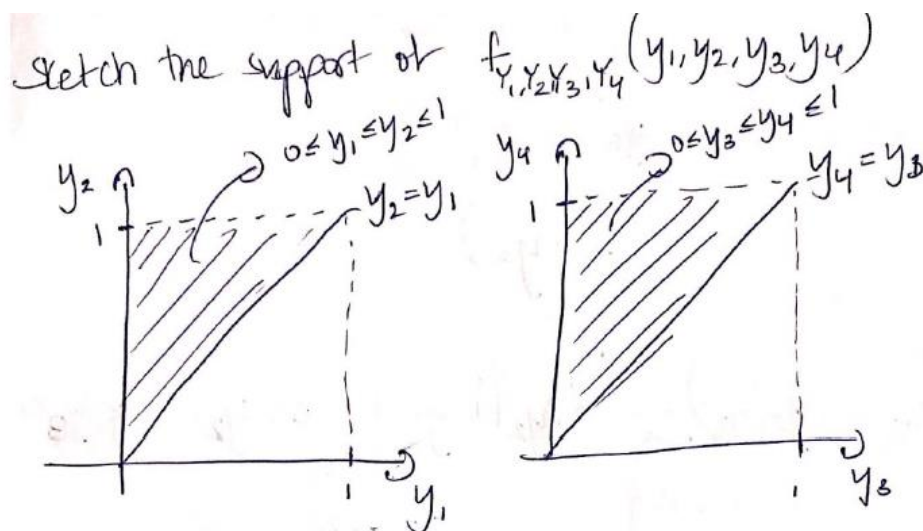 sketch the support of f_{Y_1,Y_2,Y_3,Y_4}(y_1,y_2,y_3,y_4)
0≤y_1≤y_2≤1
y_2
1
y_2=y_1
1
y_1
0≤y_3≤y_4≤1
y_4
1
y_4=y_3
1
y_3